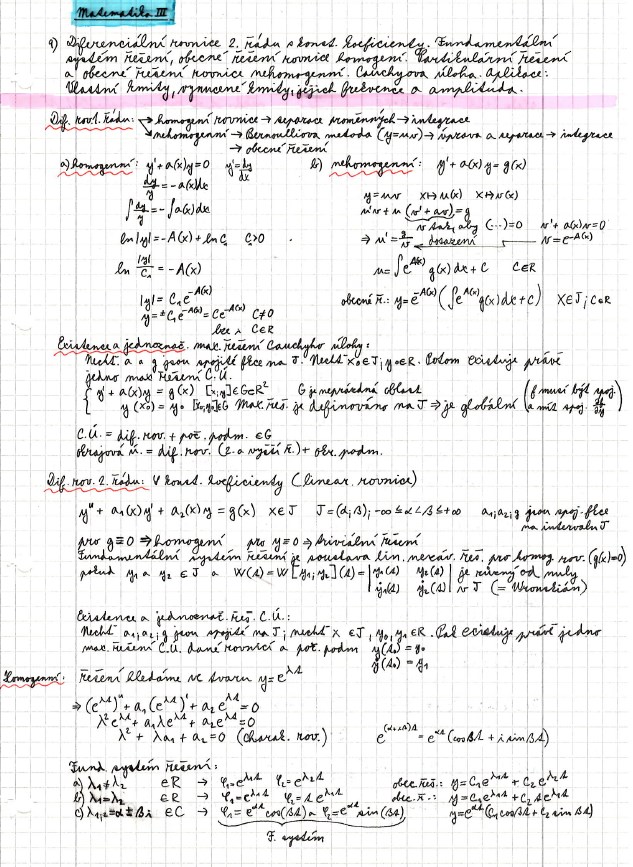 Matematika III
9) Diferenciální rovnice 2. řádu s konst. koeficienty. Fundamentální
systém řešení, obecné řešení rovnice homogení. Partikulární řešení
a obecné řešení rovnice nehomogenní. Cauchyova úloha. Aplikace:
Vlastní kmity, vynucené kmity, jejich frekvence a amplituda.
Dif. rov. 1. řádu: → homogení rovnice → separace proměnných → integrace
↘ nehomogenní → Bernoulliova metoda (y=uv) → úprava a separace → integrace
→ obecné řešení
a) homogenní: y' + a(x)y = 0   y' = dy/dx
dy/y = -a(x)dx
∫ dy/y = -∫a(x)dx
ln|y| = -A(x) + ln C₁   C₁>0
ln |y|/C₁ = -A(x)
|y| = C₁e^{-A(x)}
y = ±C₁e^{-A(x)} = Ce^{-A(x)}   C≠0
C∈R
b) nehomogenní: y' + a(x)y = g(x)
y = uv   x↦u(x)   x↦v(x)
u'v + u(v' + av) = g
v tak, aby (...)=0   v' + a(x)v=0
⇒ u' = g/v   dosazení   v = e^{-A(x)}
u = ∫e^{A(x)} g(x)dx + C   C∈R
obecné ř.: y = e^{-A(x)} (∫e^{A(x)} g(x)dx + C)   x∈J; C∈R
Existence a jednoznač. max. řešení Cauchyho úlohy:
Nechť a a g jsou spojité fkce na J. Nechť x₀∈J; y₀∈R. Potom existuje právě
jedno max řešení C.Ú.
{ y' + a(x)y = g(x)   [x;y]∈G⊂R²   G je neprázdná oblast   (f musí být spoj.
y(x₀) = y₀   [x₀;y₀]∈G   Max. řeš. je definováno na J ⇒ je globální   a mít spoj. ∂f/∂y)
C.Ú. = dif. rov. + poč. podm. ∈G
okrajová ú. = dif. rov. (2. a vyšší ř.) + okr. podm.
Dif. rov. 2. řádu: V konst. koeficienty (linear. rovnice)
y'' + a₁(x)y' + a₂(x)y = g(x)   x∈J   J=(α;β); -∞≤α<β≤+∞   a₁;a₂;g jsou spoj. fkce
na intervalu J
pro g≡0 ⇒ homogení   pro y≡0 ⇒ triviální řešení
Fundamentální systém řešení je soustava lin. nezáv. řeš. pro homog rov. (g(x)=0)
pokud y₁ a y₂ ∈ J a W(t) = W[y₁;y₂](t) = | y₁(t)   y₂(t) |   je různý od nuly
| ẏ₁(t)   ẏ₂(t) |   v J (= Wronskián)
Existence a jednoznač. řeš. C.Ú.:
Nechť a₁;a₂;g jsou spojité na J; nechť x ∈J; y₀,y₁∈R. Pak existuje právě jedno
max. řešení C.Ú. dané rovnicí a poč. podm   y(t₀) = y₀
ẏ(t₀) = y₁
Homogenní: řešení hledáme ve tvaru y=e^{λt}
⇒ (e^{λt})'' + a₁(e^{λt})' + a₂e^{λt} = 0
λ²e^{λt} + a₁λe^{λt} + a₂e^{λt} = 0
λ² + λa₁ + a₂ = 0 (charak. rov.)   e^{(α+iβ)t} = e^{αt}(cosβt + i sinβt)
Fund. systém řešení:
a) λ₁≠λ₂   ∈R → φ₁=e^{λ₁t}   φ₂=e^{λ₂t}   obec. řeš.: y=C₁e^{λ₁t} + C₂e^{λ₂t}
b) λ₁=λ₂   ∈R → φ₁=e^{λt}   φ₂=te^{λt}   obec. ř.: y=C₁e^{λt} + C₂te^{λt}
c) λ₁,₂=α±βi   ∈C → φ₁=e^{αt}cos(βt) a φ₂=e^{αt}sin(βt)   y=e^{αt}(C₁cosβt + C₂ sinβt)
F. systém